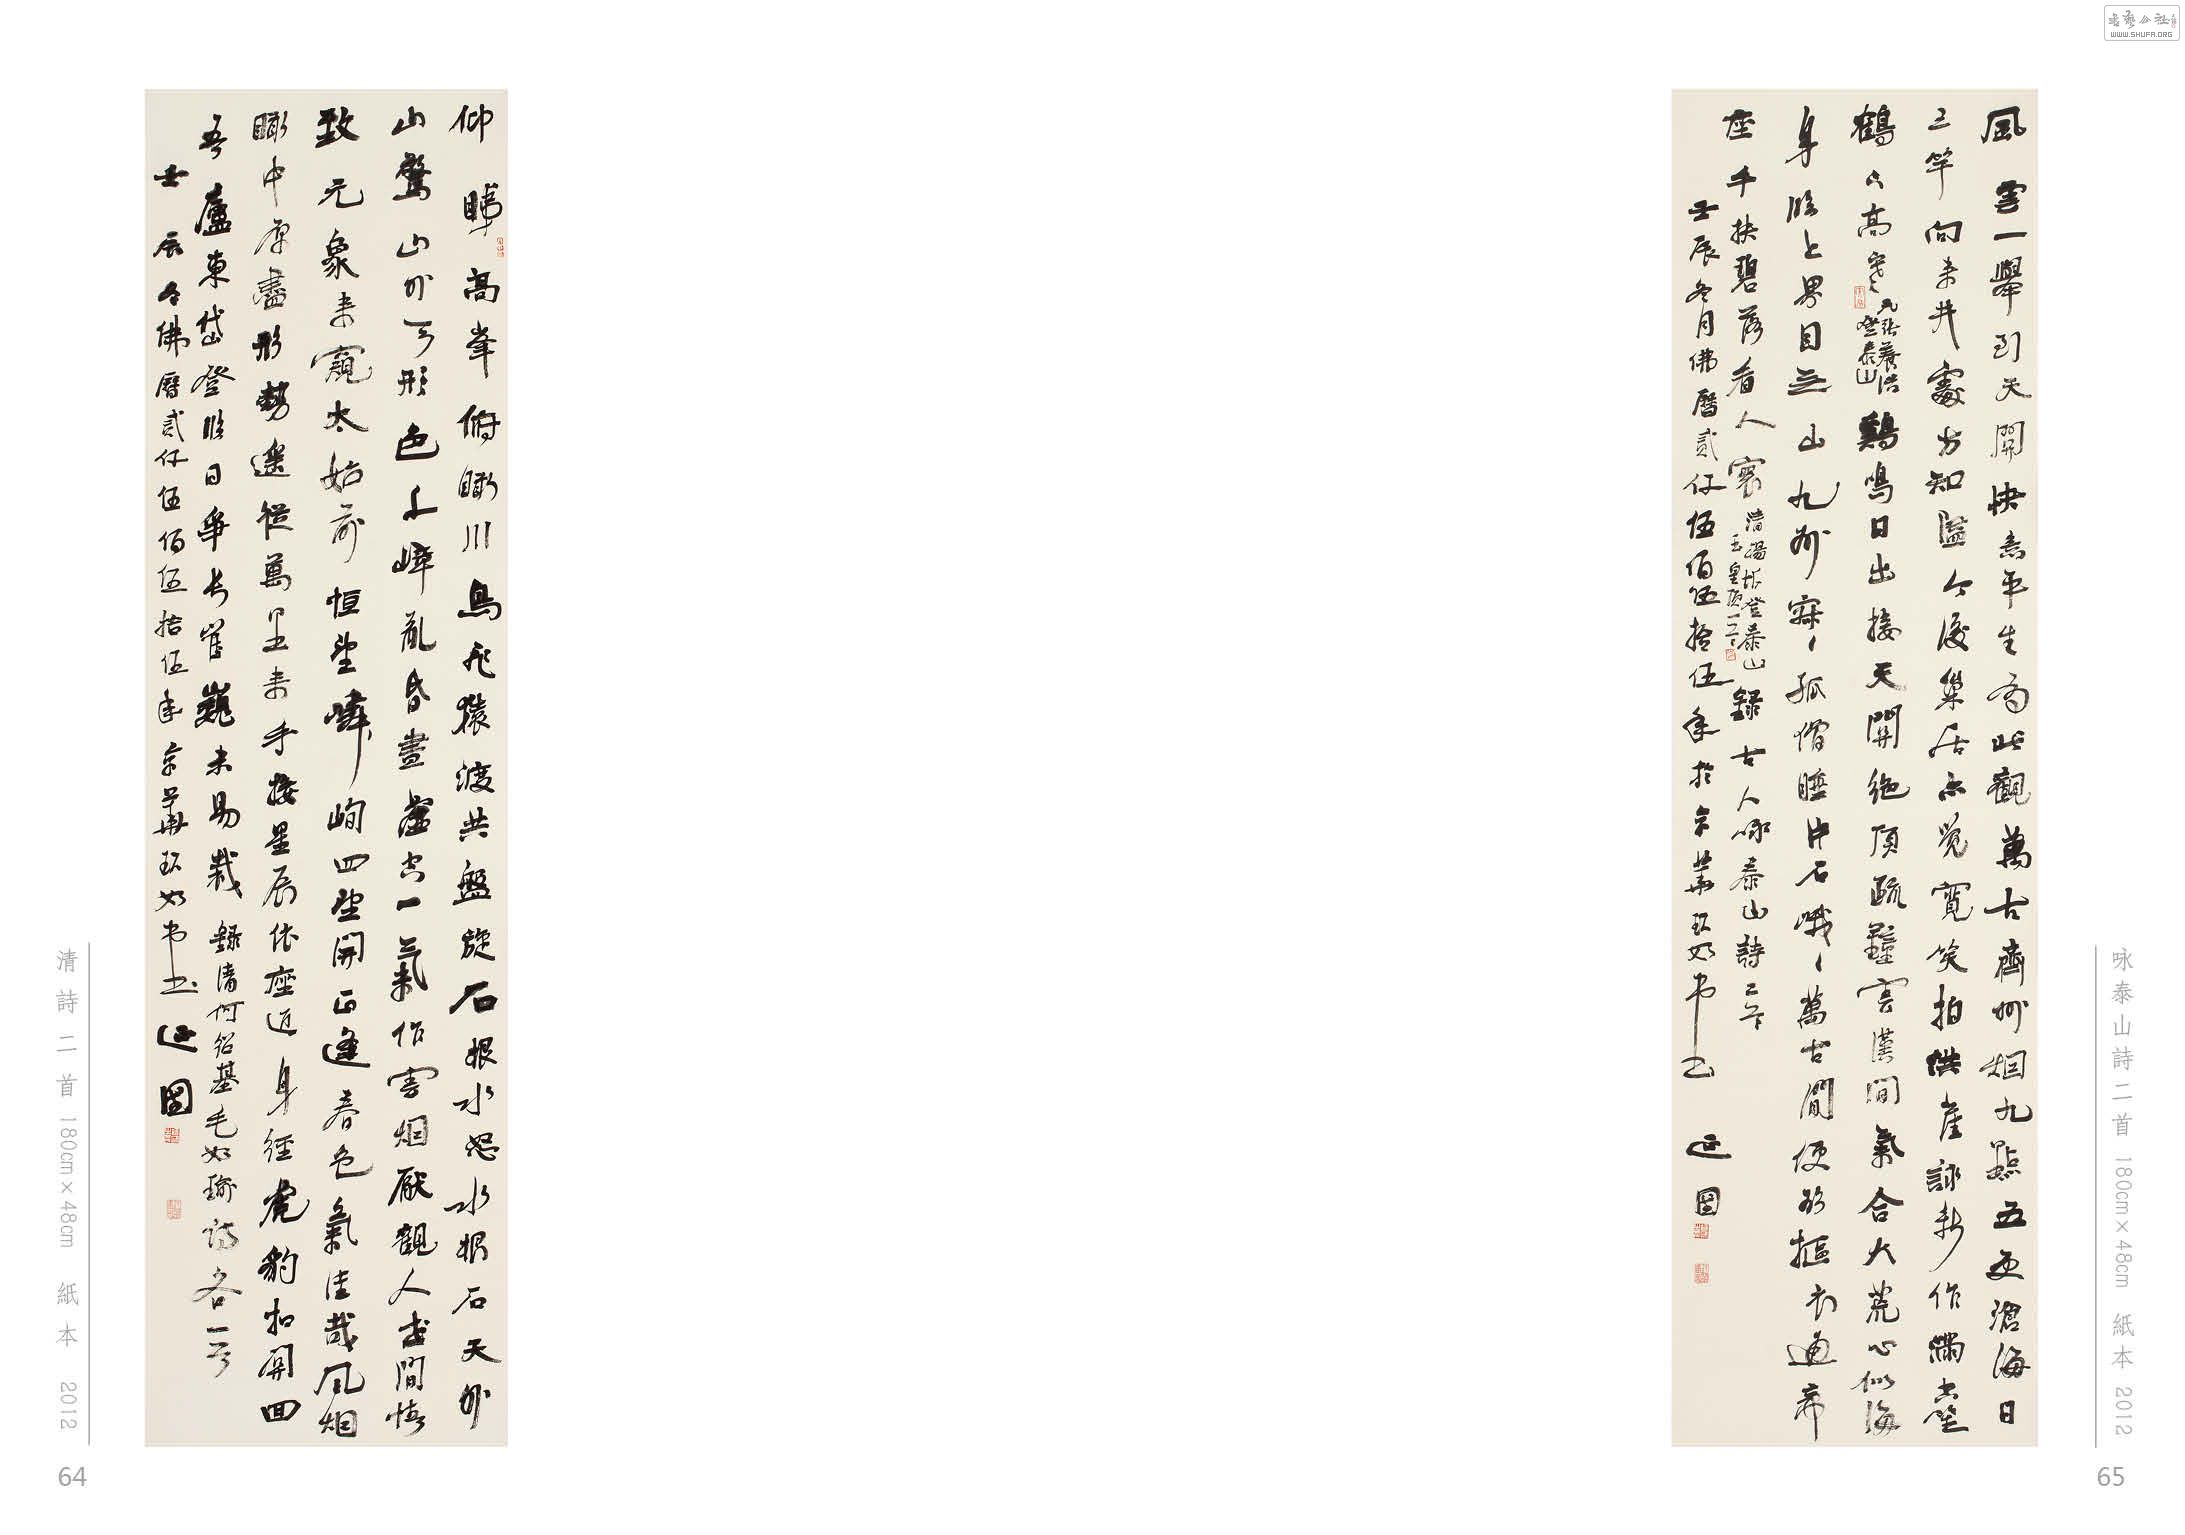 書藝公社
WWW.SHUFA.ORG
風雲一舉到天關快意平生有此觀萬古齊州烟九點五更滄海日
三竿向來井處方知隘今後巢居亦覺寬笑拍洪崖詠新作滿空笙
鶴下高寒
元張養浩
登泰山
鷄鳴日出接天關絕頂疏鐘雲漢間氣合大荒心似海
身臨上界目無山九州寂寂孤僧睡片石峨峨萬古間便欲摳衣通帝
座手扶碧落看人寰
清湯
登泰山
玉皇頂一首
錄古人咏泰山詩二首
壬辰冬月佛曆貳仟伍佰伍拾伍年於京華
延國
咏泰山詩二首 180cm×48cm 紙本 2012
65
仰睇高峯俯瞰川鳥飛猿渡共盤旋石根水怒水根石天外
山驚山外天形色千嶂亂昏晝虛空一氣作雲烟厭觀人世間情
致元象來窺太始前 恒望嶙峋四望開正逢春色氣佳哉風烟
瞰中原盡形勢遙從萬里來手接星辰依座近身經虎豹扣關回
吾廬東岱登臨日爭長嵩巍未易裁 錄清何紹基毛如瑜詩各一首
壬辰冬佛曆貳仟伍佰伍拾伍年京華
延國
清詩二首 180cm×48cm 紙本 2012
64